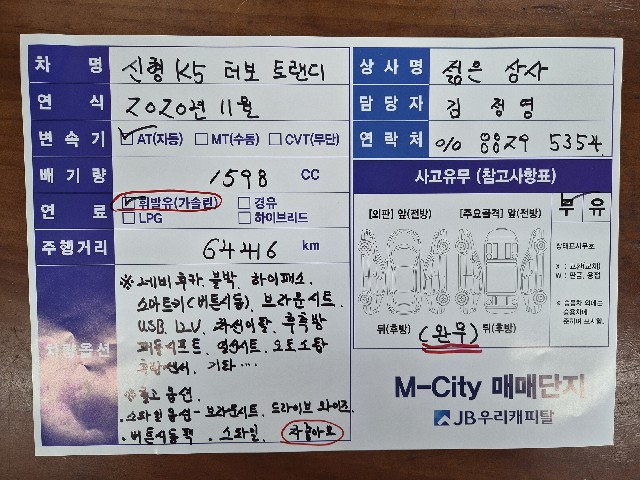 차 명 신형 K5 터보 트랜디
연 식 2020년 11월
변속기 AT(자동) MT(수동) CVT(무단)
배기량 1598 CC
연 료 휘발유(가솔린) 경유
LPG 하이브리드
주행거리 64416 km
차량옵션
※ 네비 후카 블박. 하이패스.
스마트키(버튼시동) 브라운시트.
USB. 차선이탈. 후측방
패들시프트. 열선시트. 오토
기타...
※ 출고 옵션
.스타일옵션-브라운시트. 드라이브 와이즈.
.버튼시동팩 . 스타일.
상사명 젊은 상사
담당자 김 정영
연락처 010 8829 5354
사고유무 (참고사항표)
[외판] 앞(전방) [주요골격] 앞(전방)
무 유
상태표시부호
X : 교환(교체)
W : 판금, 용접
※ 승용차 외에는
승용차에
준하여 표시함.
뒤(후방) (완무) 뒤(후방)
M-City 매매단지
JB우리캐피탈